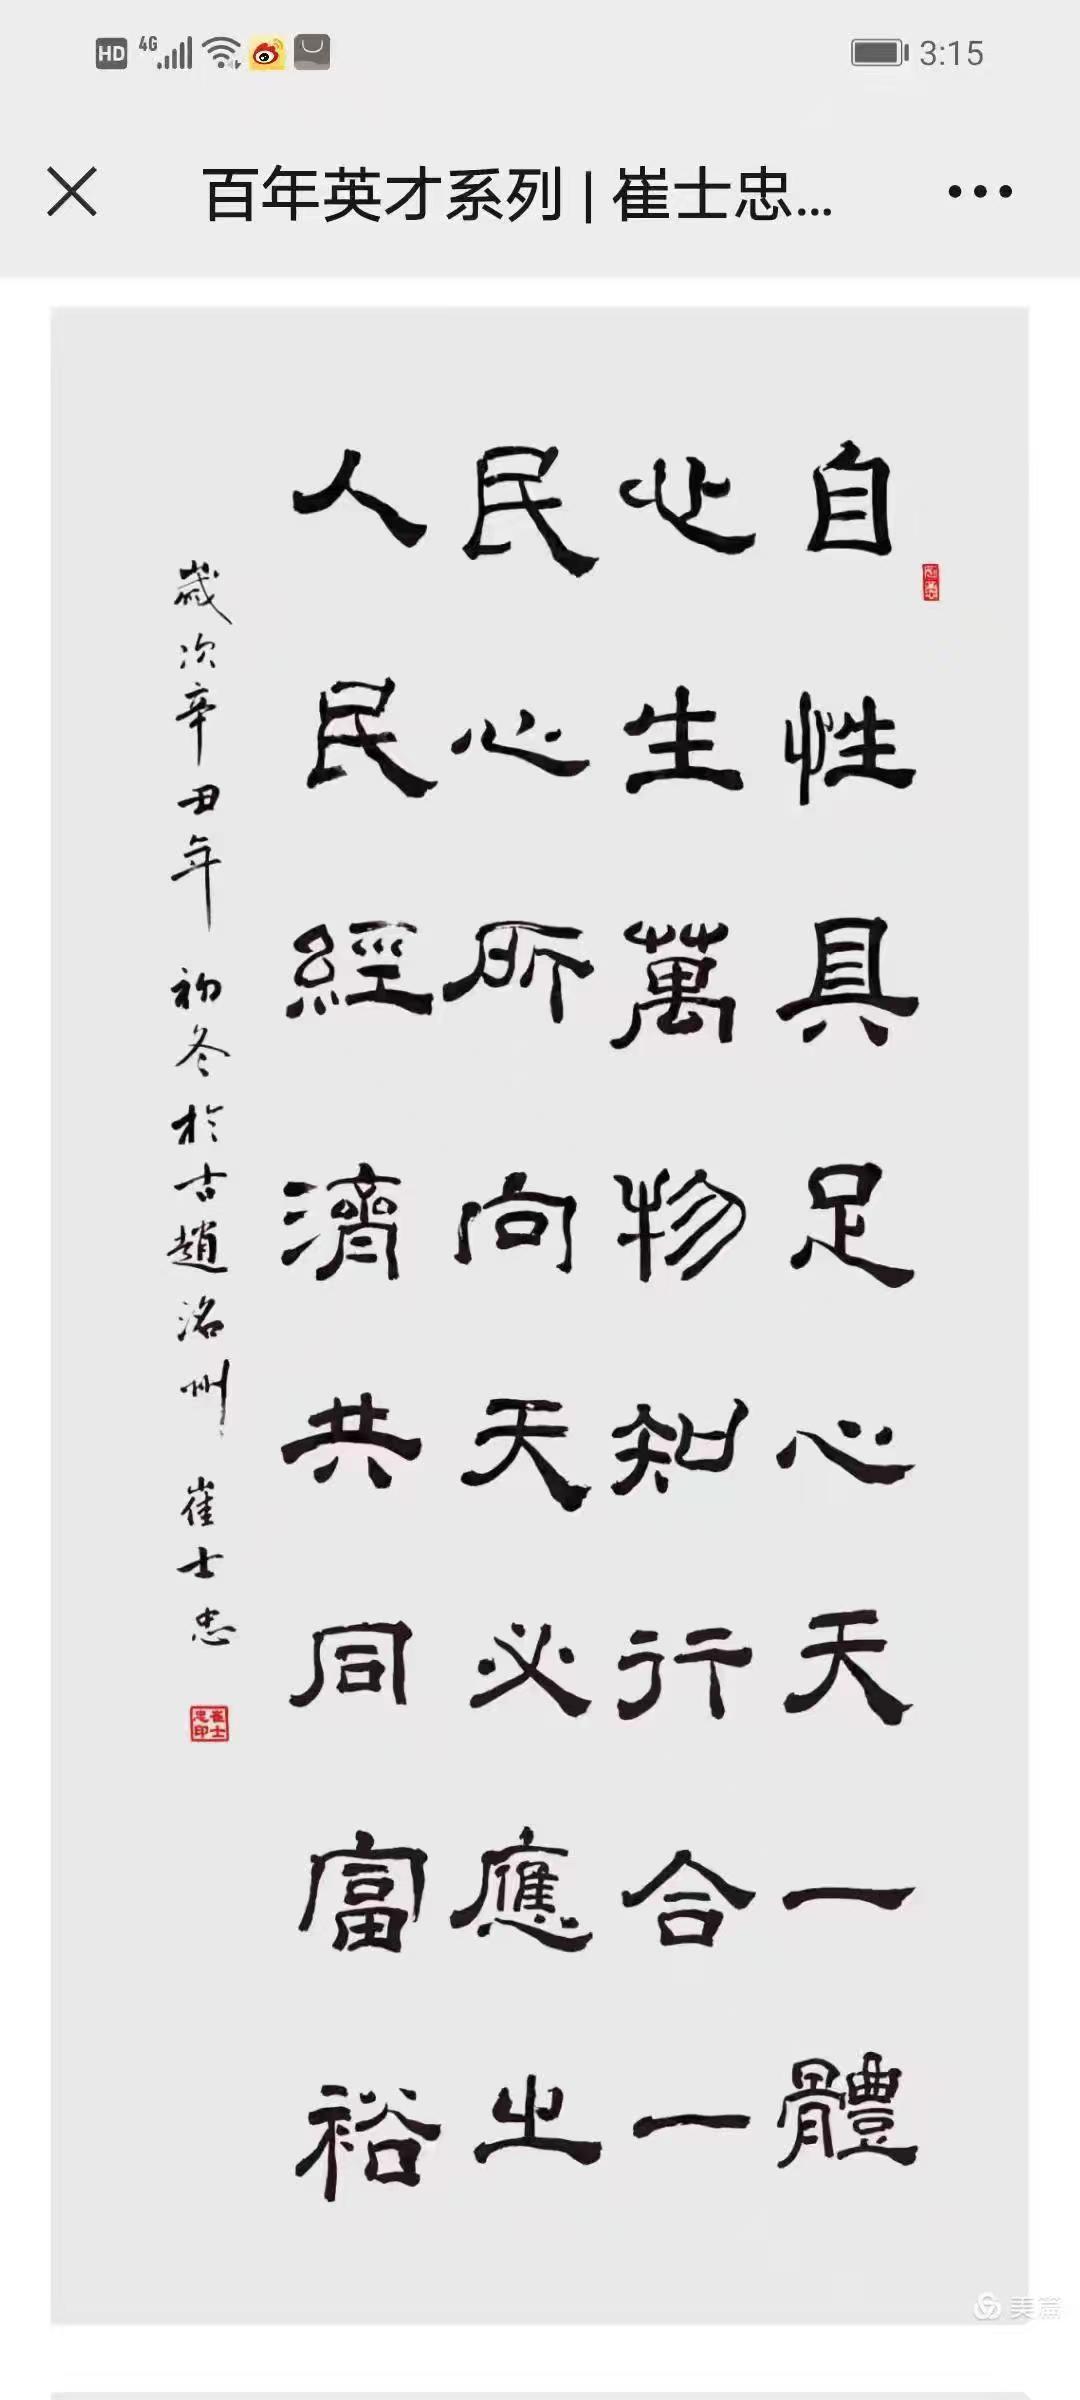 HD 4G 3:15
百年英才系列 | 崔士忠...
自性具足心天一體
心生萬物知行合一
民心所向天必應之
人民經濟共同富裕
歲次辛丑年 初冬於古趙洺州 崔士忠
崔士忠印
美篇